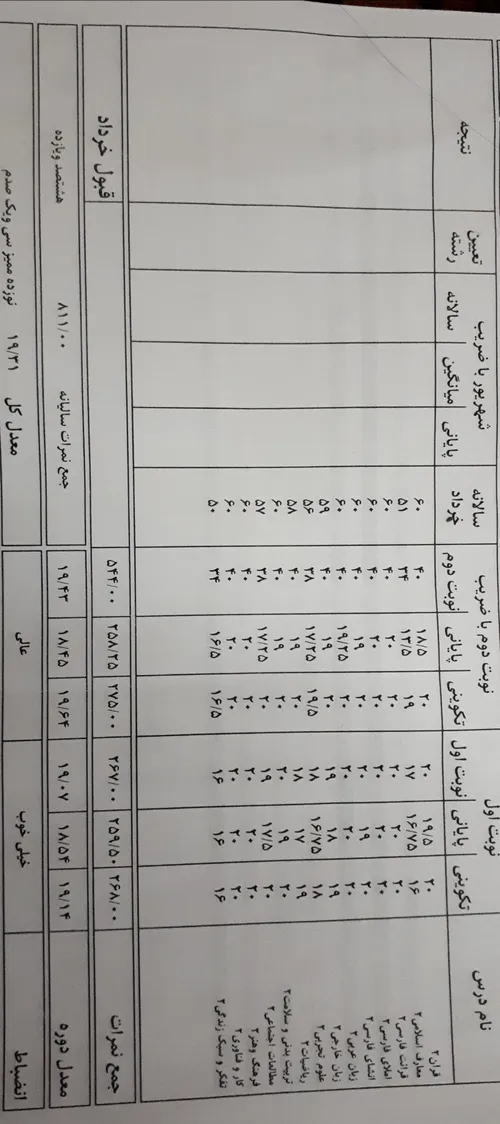 نام درس نوبت اول نوبت دوم با ضریب سالانه شهریور با ضریب تعیین نتیجه
تکوینی پایانی نوبت اول تکوینی پایانی نوبت دوم خرداد پایانی میانگین سالانه رشته
قران۲ ۲۰ ۱۹/۵ ۲۰ ۲۰ ۱۸/۵ ۴۰ ۶۰
معارف اسلامی۲ ۱۶ ۱۶/۷۵ ۱۷ ۱۹ ۱۳/۵ ۳۴ ۵۱
قرائت فارسی۲ ۲۰ ۲۰ ۲۰ ۲۰ ۲۰ ۴۰ ۶۰
املای فارسی۲ ۲۰ ۲۰ ۲۰ ۲۰ ۲۰ ۴۰ ۶۰
انشای فارسی۲ ۲۰ ۱۹ ۲۰ ۲۰ ۱۹ ۴۰ ۶۰
زبان عربی۲ ۲۰ ۲۰ ۲۰ ۲۰ ۱۹/۲۵ ۴۰ ۶۰
زبان خارجی۲ ۱۹ ۱۸ ۱۹ ۲۰ ۱۹ ۴۰ ۵۹
علوم تجربی۲ ۱۸ ۱۶/۷۵ ۱۸ ۱۹/۵ ۱۷/۲۵ ۳۸ ۵۶
ریاضیات۲ ۱۹ ۱۷ ۱۸ ۲۰ ۱۹ ۴۰ ۵۸
تربیت بدنی و سلامت۲ ۲۰ ۱۹ ۲۰ ۲۰ ۱۹ ۴۰ ۶۰
مطالعات اجتماعی۲ ۲۰ ۱۷/۵ ۱۹ ۲۰ ۱۷/۲۵ ۳۸ ۵۷
فرهنگ وهنر۲ ۲۰ ۲۰ ۲۰ ۲۰ ۲۰ ۴۰ ۶۰
کار و فناوری۲ ۲۰ ۲۰ ۲۰ ۲۰ ۲۰ ۴۰ ۶۰
تفکر و سبک زندگی۲ ۱۶ ۱۶ ۱۶ ۱۶/۵ ۱۶/۵ ۳۴ ۵۰
جمع نمرات ۲۶۸/۰۰ ۲۵۹/۵۰ ۲۶۷/۰۰ ۲۷۵/۰۰ ۲۵۸/۲۵ ۵۴۴/۰۰ قبول خرداد
معدل دوره ۱۹/۱۴ ۱۸/۵۴ ۱۹/۰۷ ۱۹/۶۴ ۱۸/۴۵ ۱۹/۴۳ جمع نمرات سالیانه ۸۱۱/۰۰ هشتصد ویازده
انضباط خیلی خوب عالی معدل کل ۱۹/۳۱ نوزده ممیز سی ویک صدم